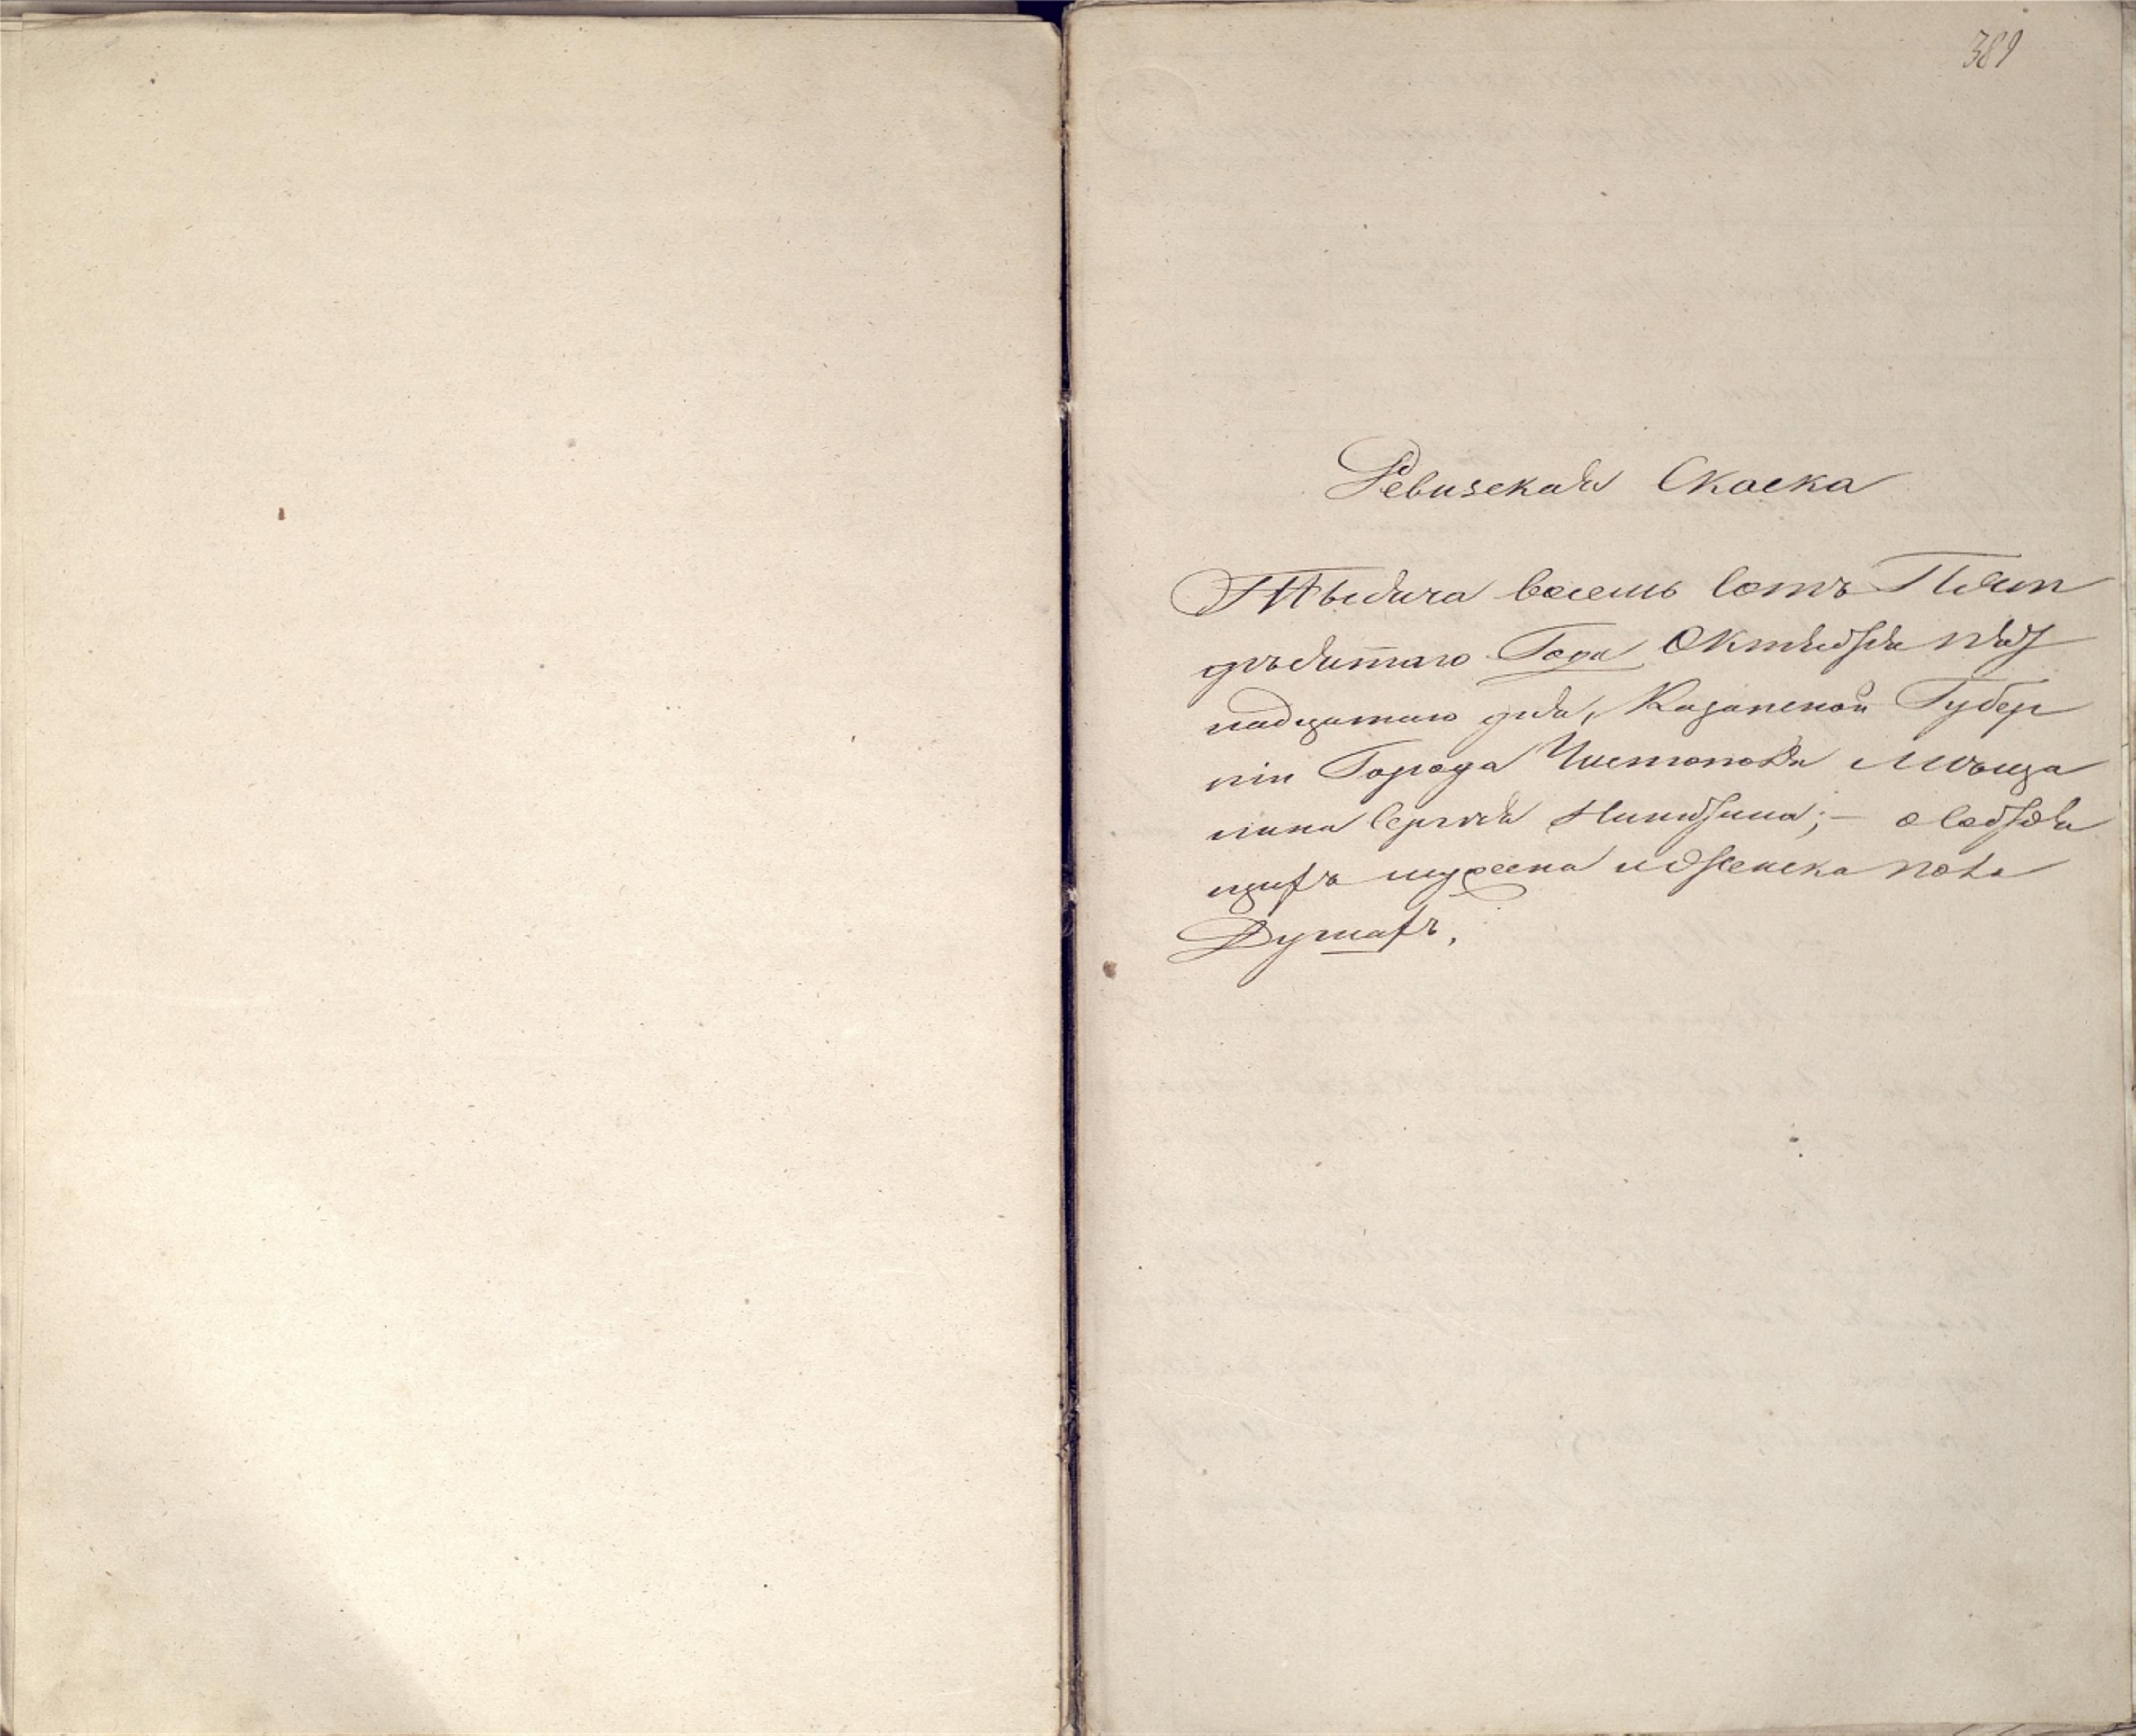 389
Ревизская Скаска
Тысяча восемь сотъ Пят
десятаго Года Октября
надцатаго дня, Казанской Губер
ніи Города Чистополя Мѣща
нина Сергѣя
щихъ мужеска и женска пола
Душахъ,